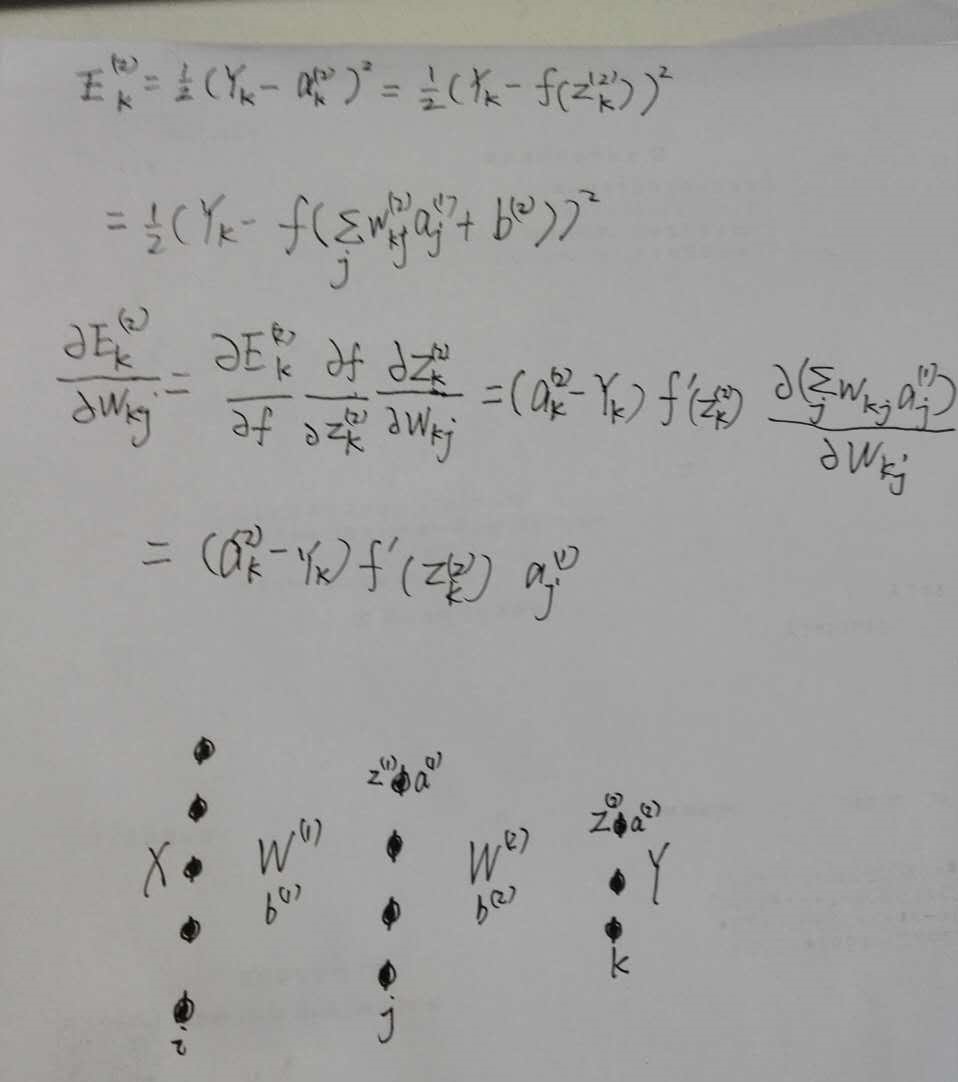 E_k^{(2)} = ½(Y_k - a_k^{(2)})² = ½(Y_k - f(z_k^{(2)}))²
= ½(Y_k - f(∑_j w_{kj}^{(2)} a_j^{(1)} + b^{(2)}))²
∂E_k^{(2)}/∂w_{kj} = ∂E_k^{(2)}/∂f ∂f/∂z_k^{(2)} ∂z_k^{(2)}/∂w_{kj} = (a_k^{(2)} - Y_k) f'(z_k^{(2)}) ∂(∑_j w_{kj} a_j^{(1)})/∂w_{kj}
= (a_k^{(2)} - Y_k) f'(z_k^{(2)}) a_j^{(1)}
z^{(1)} a^{(1)}
z^{(2)} a^{(2)}
X W^{(1)} W^{(2)} Y
b^{(1)} b^{(2)}
i j k